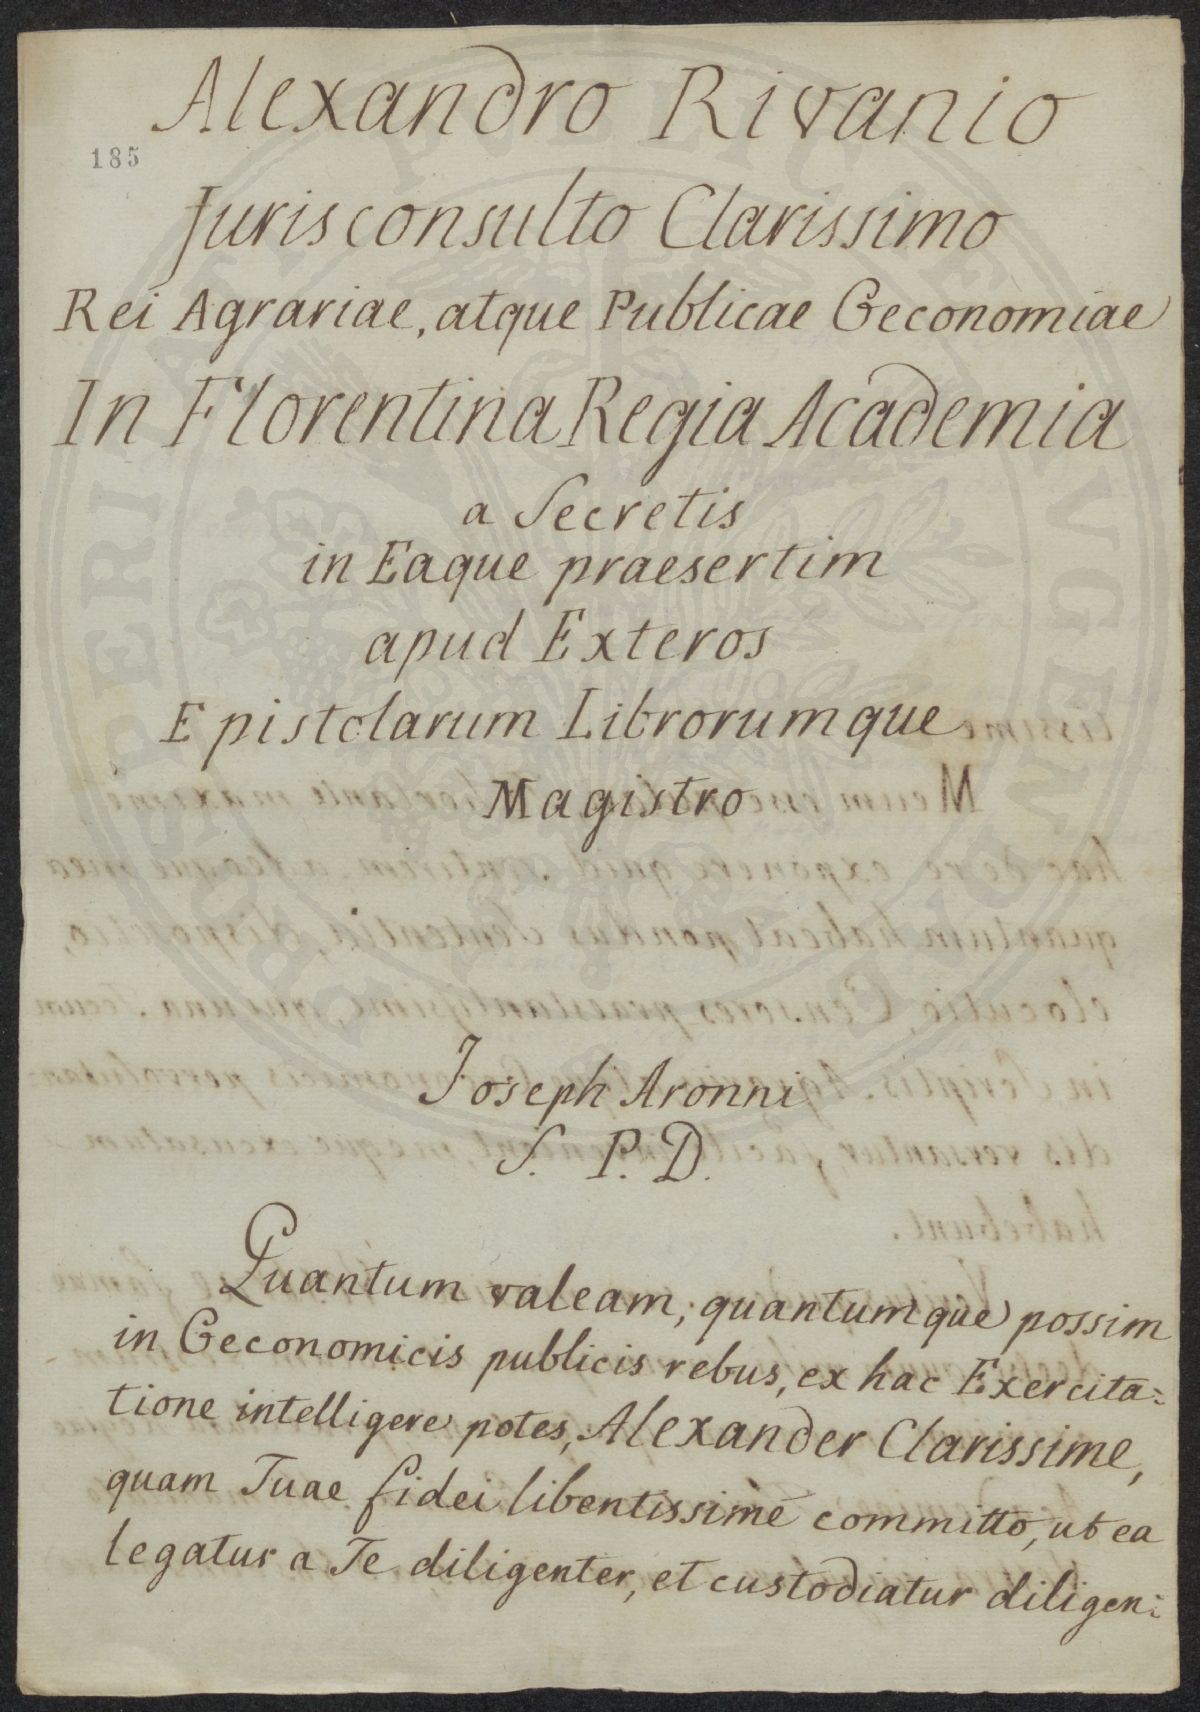 Alexandro Rivanio
185
Jurisconsulto Clarissimo
Rei Agrariae, atque Publicae Oeconomiae
In Florentina Regia Academia
a Secretis
in Eaque praesertim
apud Exteros
Epistolarum Librorumque
Magistro
Joseph Aronni
S. P. D.
Quantum valeam, quantumque possim
in Oeconomicis publicis rebus, ex hac Exercita=
tione intelligere potes, Alexander Clarissime,
quam Tuae fidei libentissimè committo, ut ea
legatur a Te diligenter, et custodiatur diligen=